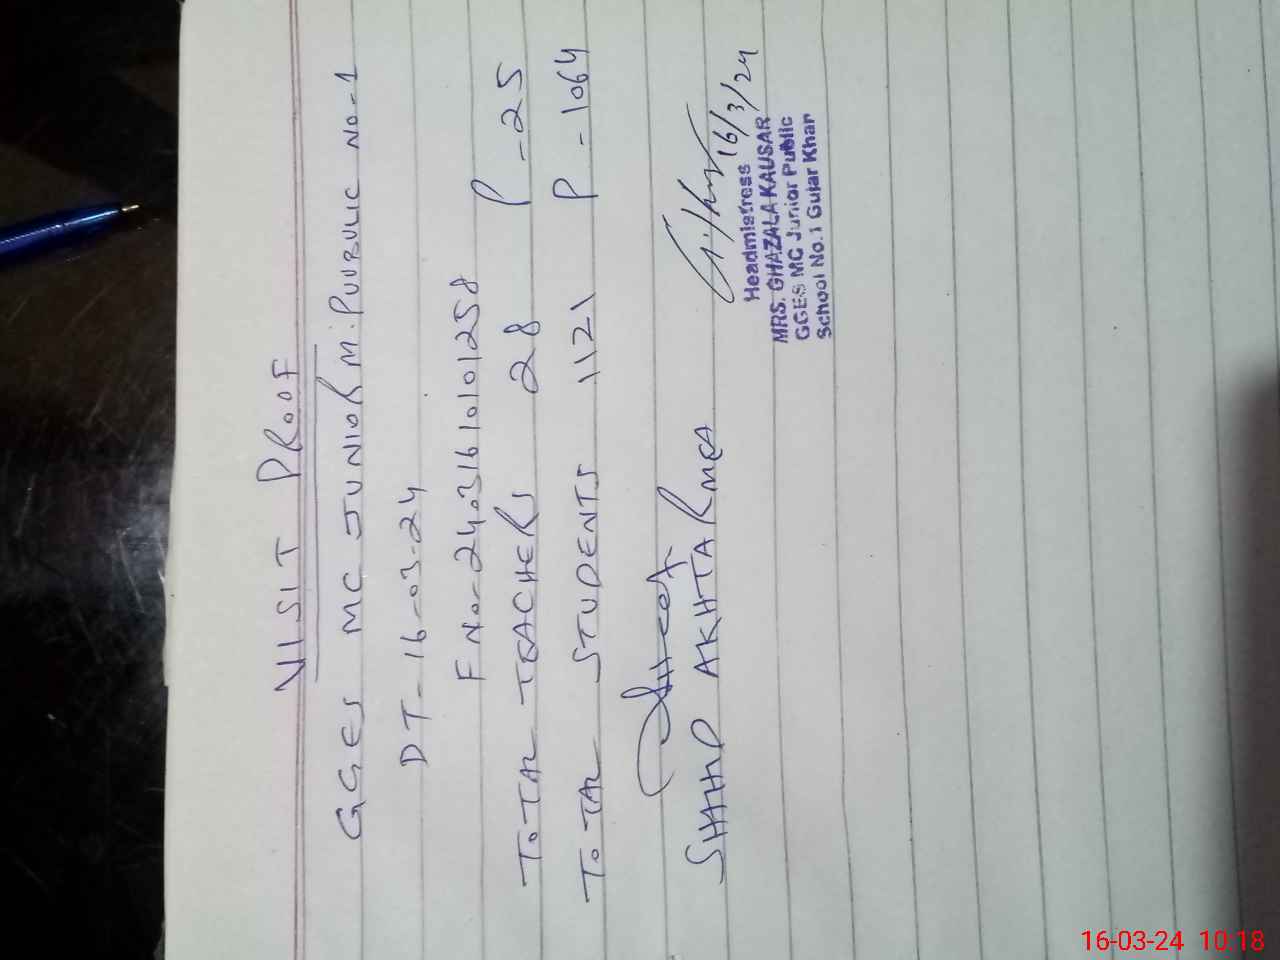 VISIT PROOF
GGES MC JUNIOR M. PUUBULIC NO-1
DT-16-03-24
F No-24031610101258
TOTAL TEACHERS 28 P-25
TOTAL STUDENTS 1121 P-1064
SHAHID AKHTAR MEA
16/3/24
Headmistress
MRS. GHAZALA KAUSAR
GGES MC Junior Public
School No.1 Gujar Khan
16-03-24 10:18